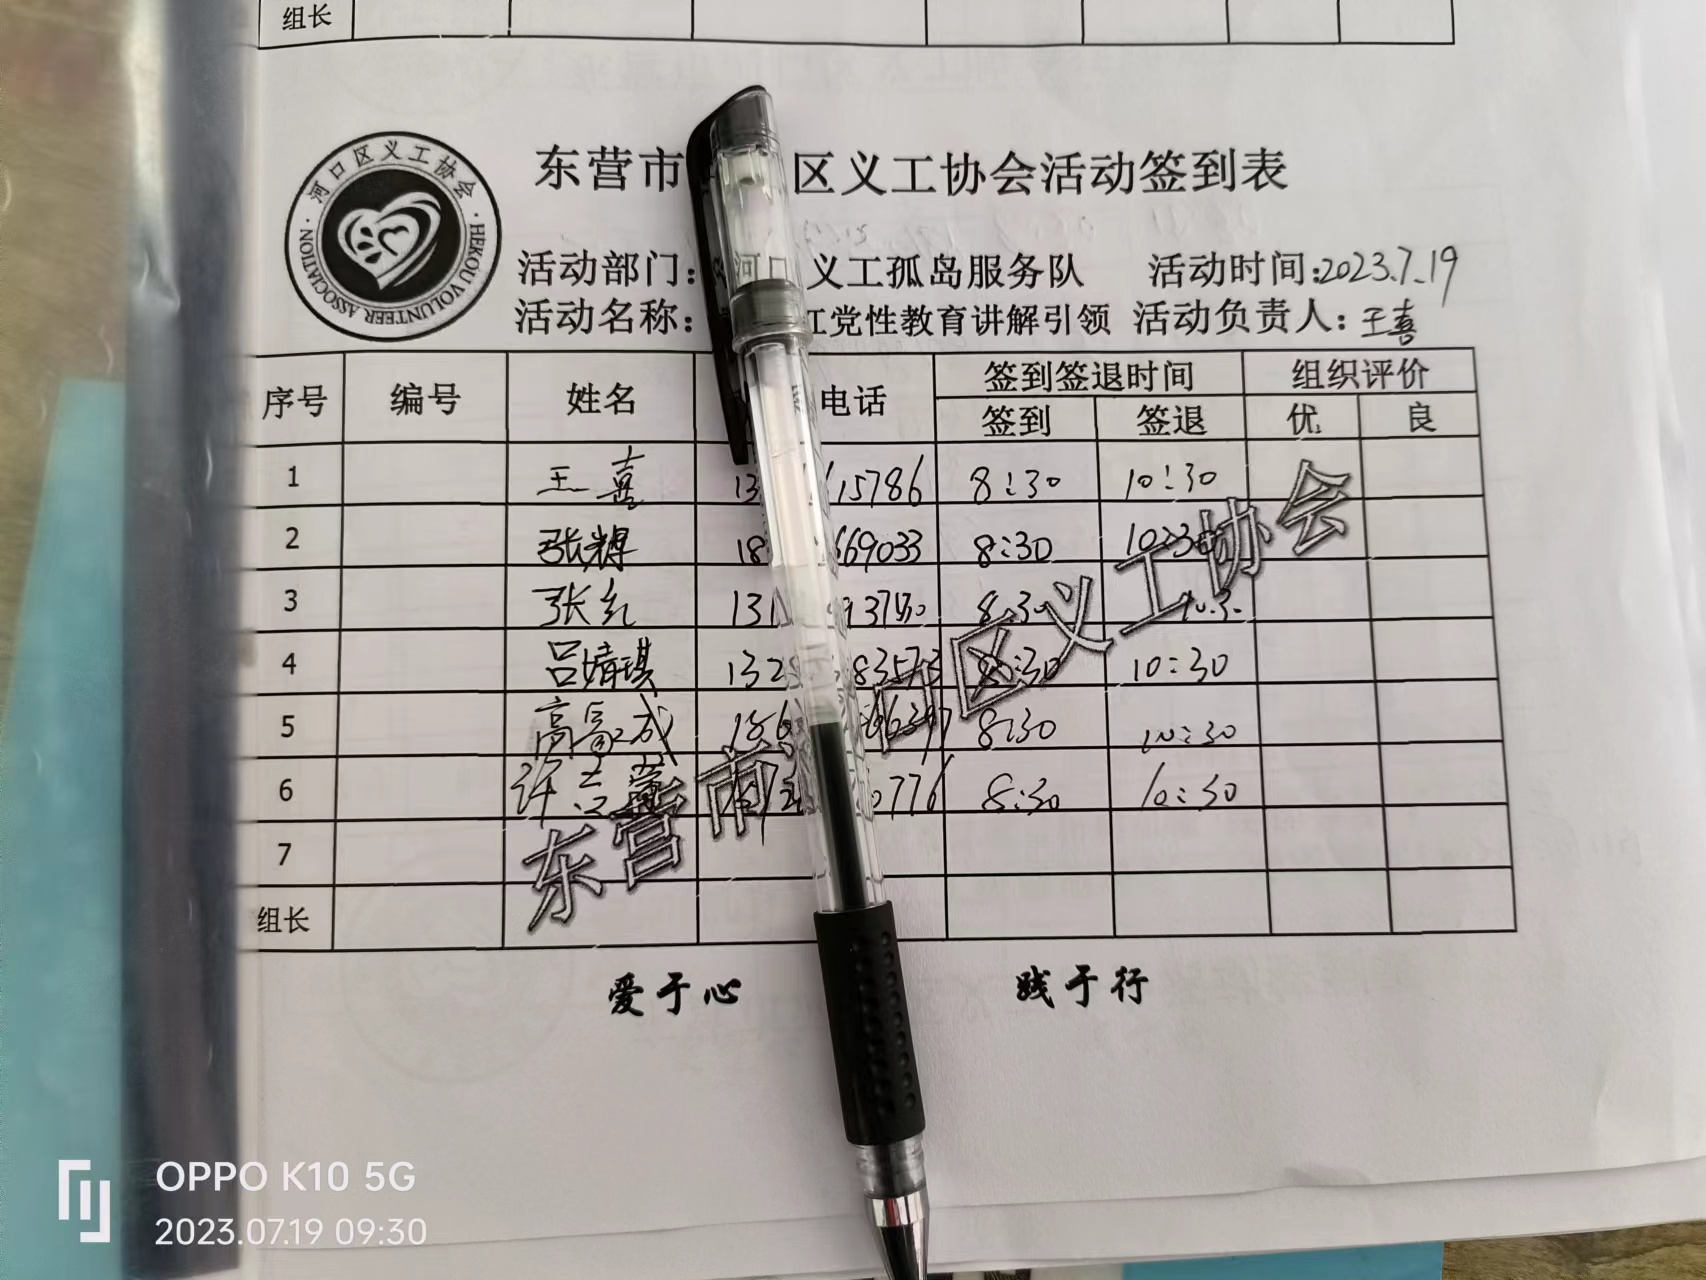 组长
河口区义工协会
HEKOU VOLUNTEER ASSOCIATION
东营市 区义工协会活动签到表
活动部门: 河口 义工孤岛服务队 活动时间:2023.7.19
活动名称: 红党性教育讲解引领 活动负责人:王喜
序号 编号 姓名 电话 签到签退时间 组织评价
签到 签退 优 良
1 王喜 13 15786 8:30 10:30
2 张辉 18 669033 8:30 10:30
3 张红 131 8:30 10:30
4 吕婧琪 132 83573 8:30 10:30
5 高 成 186 8:30 10:30
6 许 0776 8:30 10:30
7
组长
东营市 口区义工协会
爱于心 践于行
OPPO K10 5G
2023.07.19 09:30